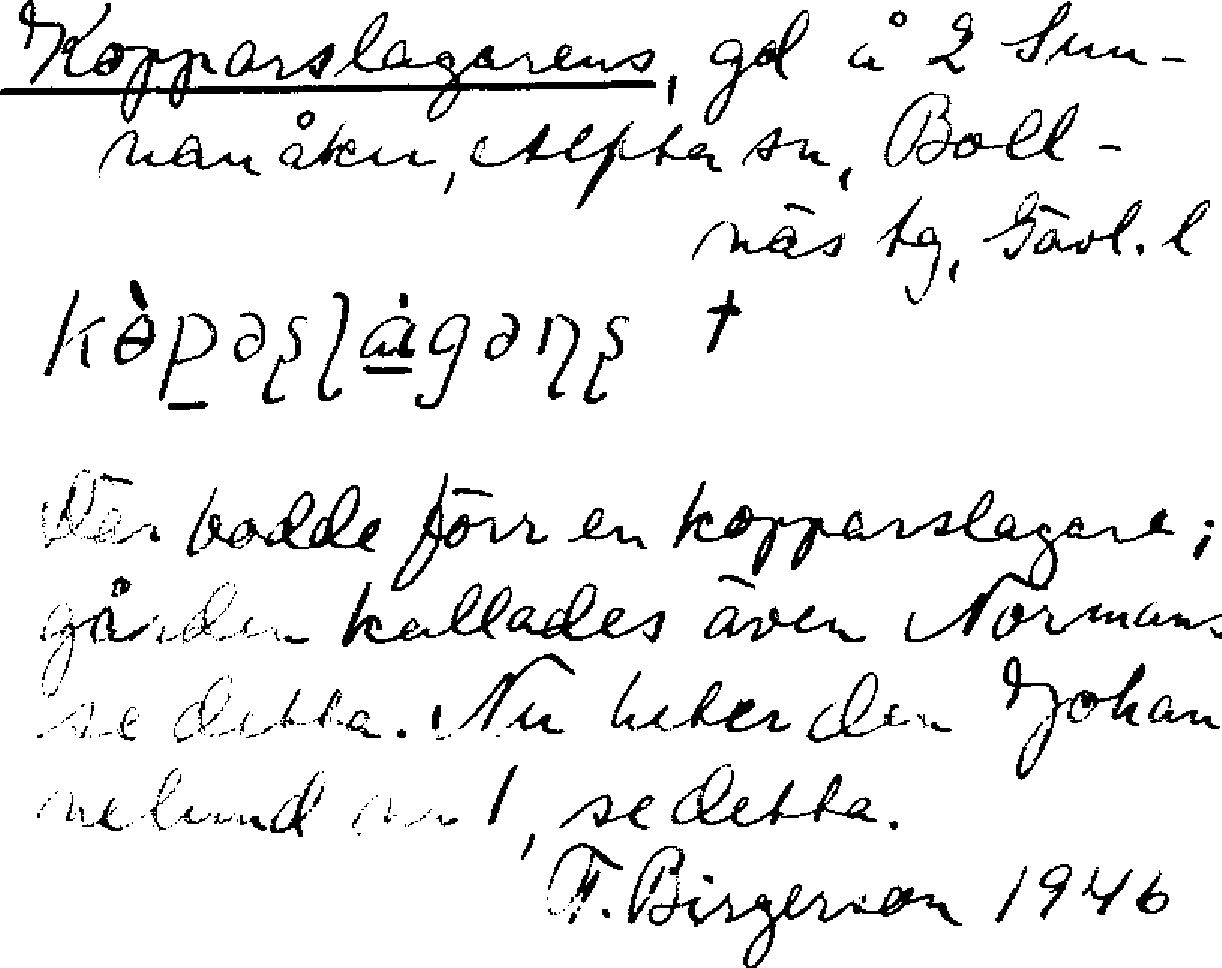 Kopparslagarens, gd å 2 Sun-
nanåker, Alfta sn, Boll-
näs tg, Gävl. l
kòpəʂlàgəɳʂ †
Där bodde förr en kopparslagare;
gården kallades även Normans
se detta. Nu heter den Johan
nelund nr 1, se detta.
F. Birgerson 1946